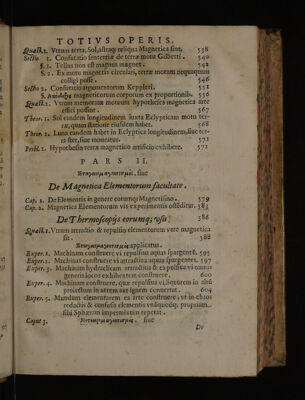 TOTIVS OPERIS.
Quæst. 1. Vtrum terra, Sol, astraq; reliqua Magnetica sint. 538
Sectio 1. Confutatio sententiæ de terræ motu Gilberti. 540
§. 1. Tellus non est magnus magnes. 542
§. 2. Ex motu magnetis circulari, terræ motum nequaquam
colligi posse. 546
Sectio 2. Confutatio argumentorum Keppleri. 551
§. magneticorum corporum ex proportionib. 556
Quæst. 2. Vtrum memorata motuum hypotheses magnetica arte
effici possint. 567
Theor. 1. Sol eandem longitudinem iuxta Eclypticam motu ter-
ræ, quam statione eiusdem habet. 568
Theor. 2. Luna eandem habet in Eclyptica longitudinem, siue ter-
ra stet, siue moueatur. 571
Probl. 1. Hypothesin terræ magnetico artificio exhibere. 572
PARS II.
siue
De Magnetica Elementorum facultate.
Cap. 1. De Elementis in genere eorumq; Magnetismo. 579
Cap. 2. Magnetica Elementorum vis experimentis ostenditur. 583
De Thermoscopijs eorumq; vsu. 586
Quæst. 1. Vtrum attractio & repulsio elementorum vere magnetica
sit. 588
applicatus.
Exper. 1. Machinam construere vi repulsiua aquas spargentē. 595
Exper. 2. Machinam construere vi attractiua aquas spargentem. 597
Exper. 3. Machinam hydraulicam attractiua & expulsiua vi omnis
generis iocos exhibentem construere. 600
Exper. 4. Machinam construere, quæ repulsiua vi, liquorem in altū
proiectum in aërem aut ignem conuertat. 604
Exper. 5. Mundum elementarem ex arte construere, vt in chaos
redactis & confusis elementis vnūquodq; propriam
sibi Sphæram impermixtim repetat.
Caput 3. siue
De